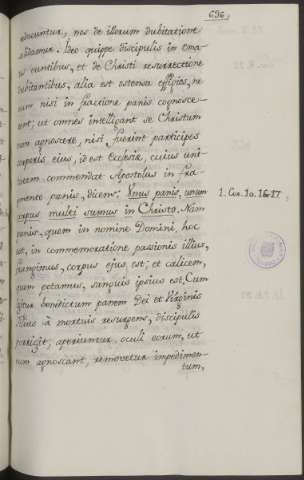 636
educuntur, nos de illorum dubitatione
Ideo quippe discipulis in Ema-
us euntibus, et de Christi resurrectione
dubitantibus, alia est ostensa effigies, ne
eum nisi in fractione panis cognosce-
rent; ut omnes intelligant se Christum
non agnoscere, nisi fuerint participes
corporis eius, id est Ecclesiæ, cuius uni-
tatem commendat Apostolus in sa-
mento panis, dicens: Unus panis, unum
corpus multi sumus in Christo. Nam
panis, quem in nomine Domini, hoc
est, in commemoratione passionis illius,
frangimus, corpus ejus est; et calicem,
quem potamus, sanguis ipsius est. Cum
igitur benedictum panem Dei et Virginis
filius à mortuis resurgens, discipulis
porrigit, aperiuntur oculi eorum, ut
eum agnoscant, removetur impedimen-
tum,
1. Cor. 10. 16. 17.